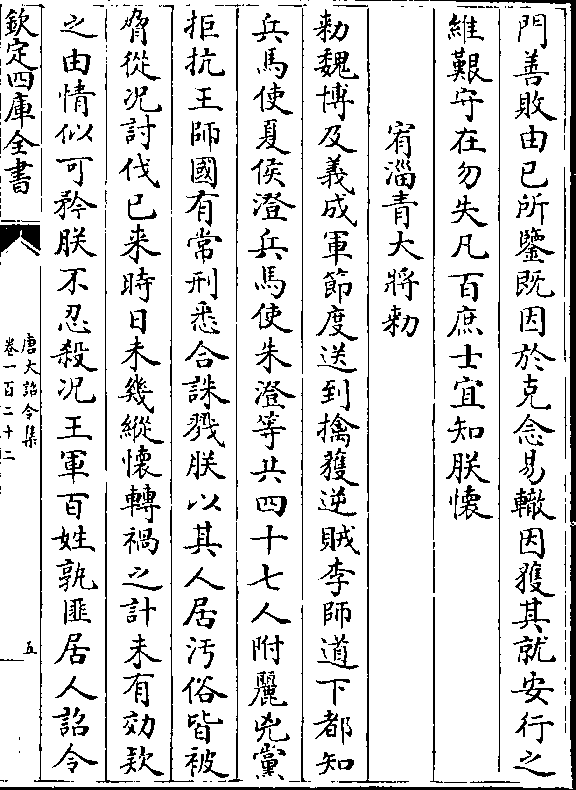 門善敗由已所鑒既因於克念易轍因獲其就安行之
維艱守在勿失凡百庶士宜知朕懷
宥淄青大將敕
敕魏博及義成軍節度送到擒獲逆賊李師道下都知
兵馬使夏侯澄兵馬使朱澄等共四十七人附麗兇黨
拒抗王師國有常刑悉合誅戮朕以其人居汚俗皆被
脅從况討伐已来時日未幾縱懷轉禍之計未有効欵
之由情似可矜朕不忍殺况王軍百姓孰匪居人詔令
欽定四庫全書
唐大詔令集
卷一百二十二
五